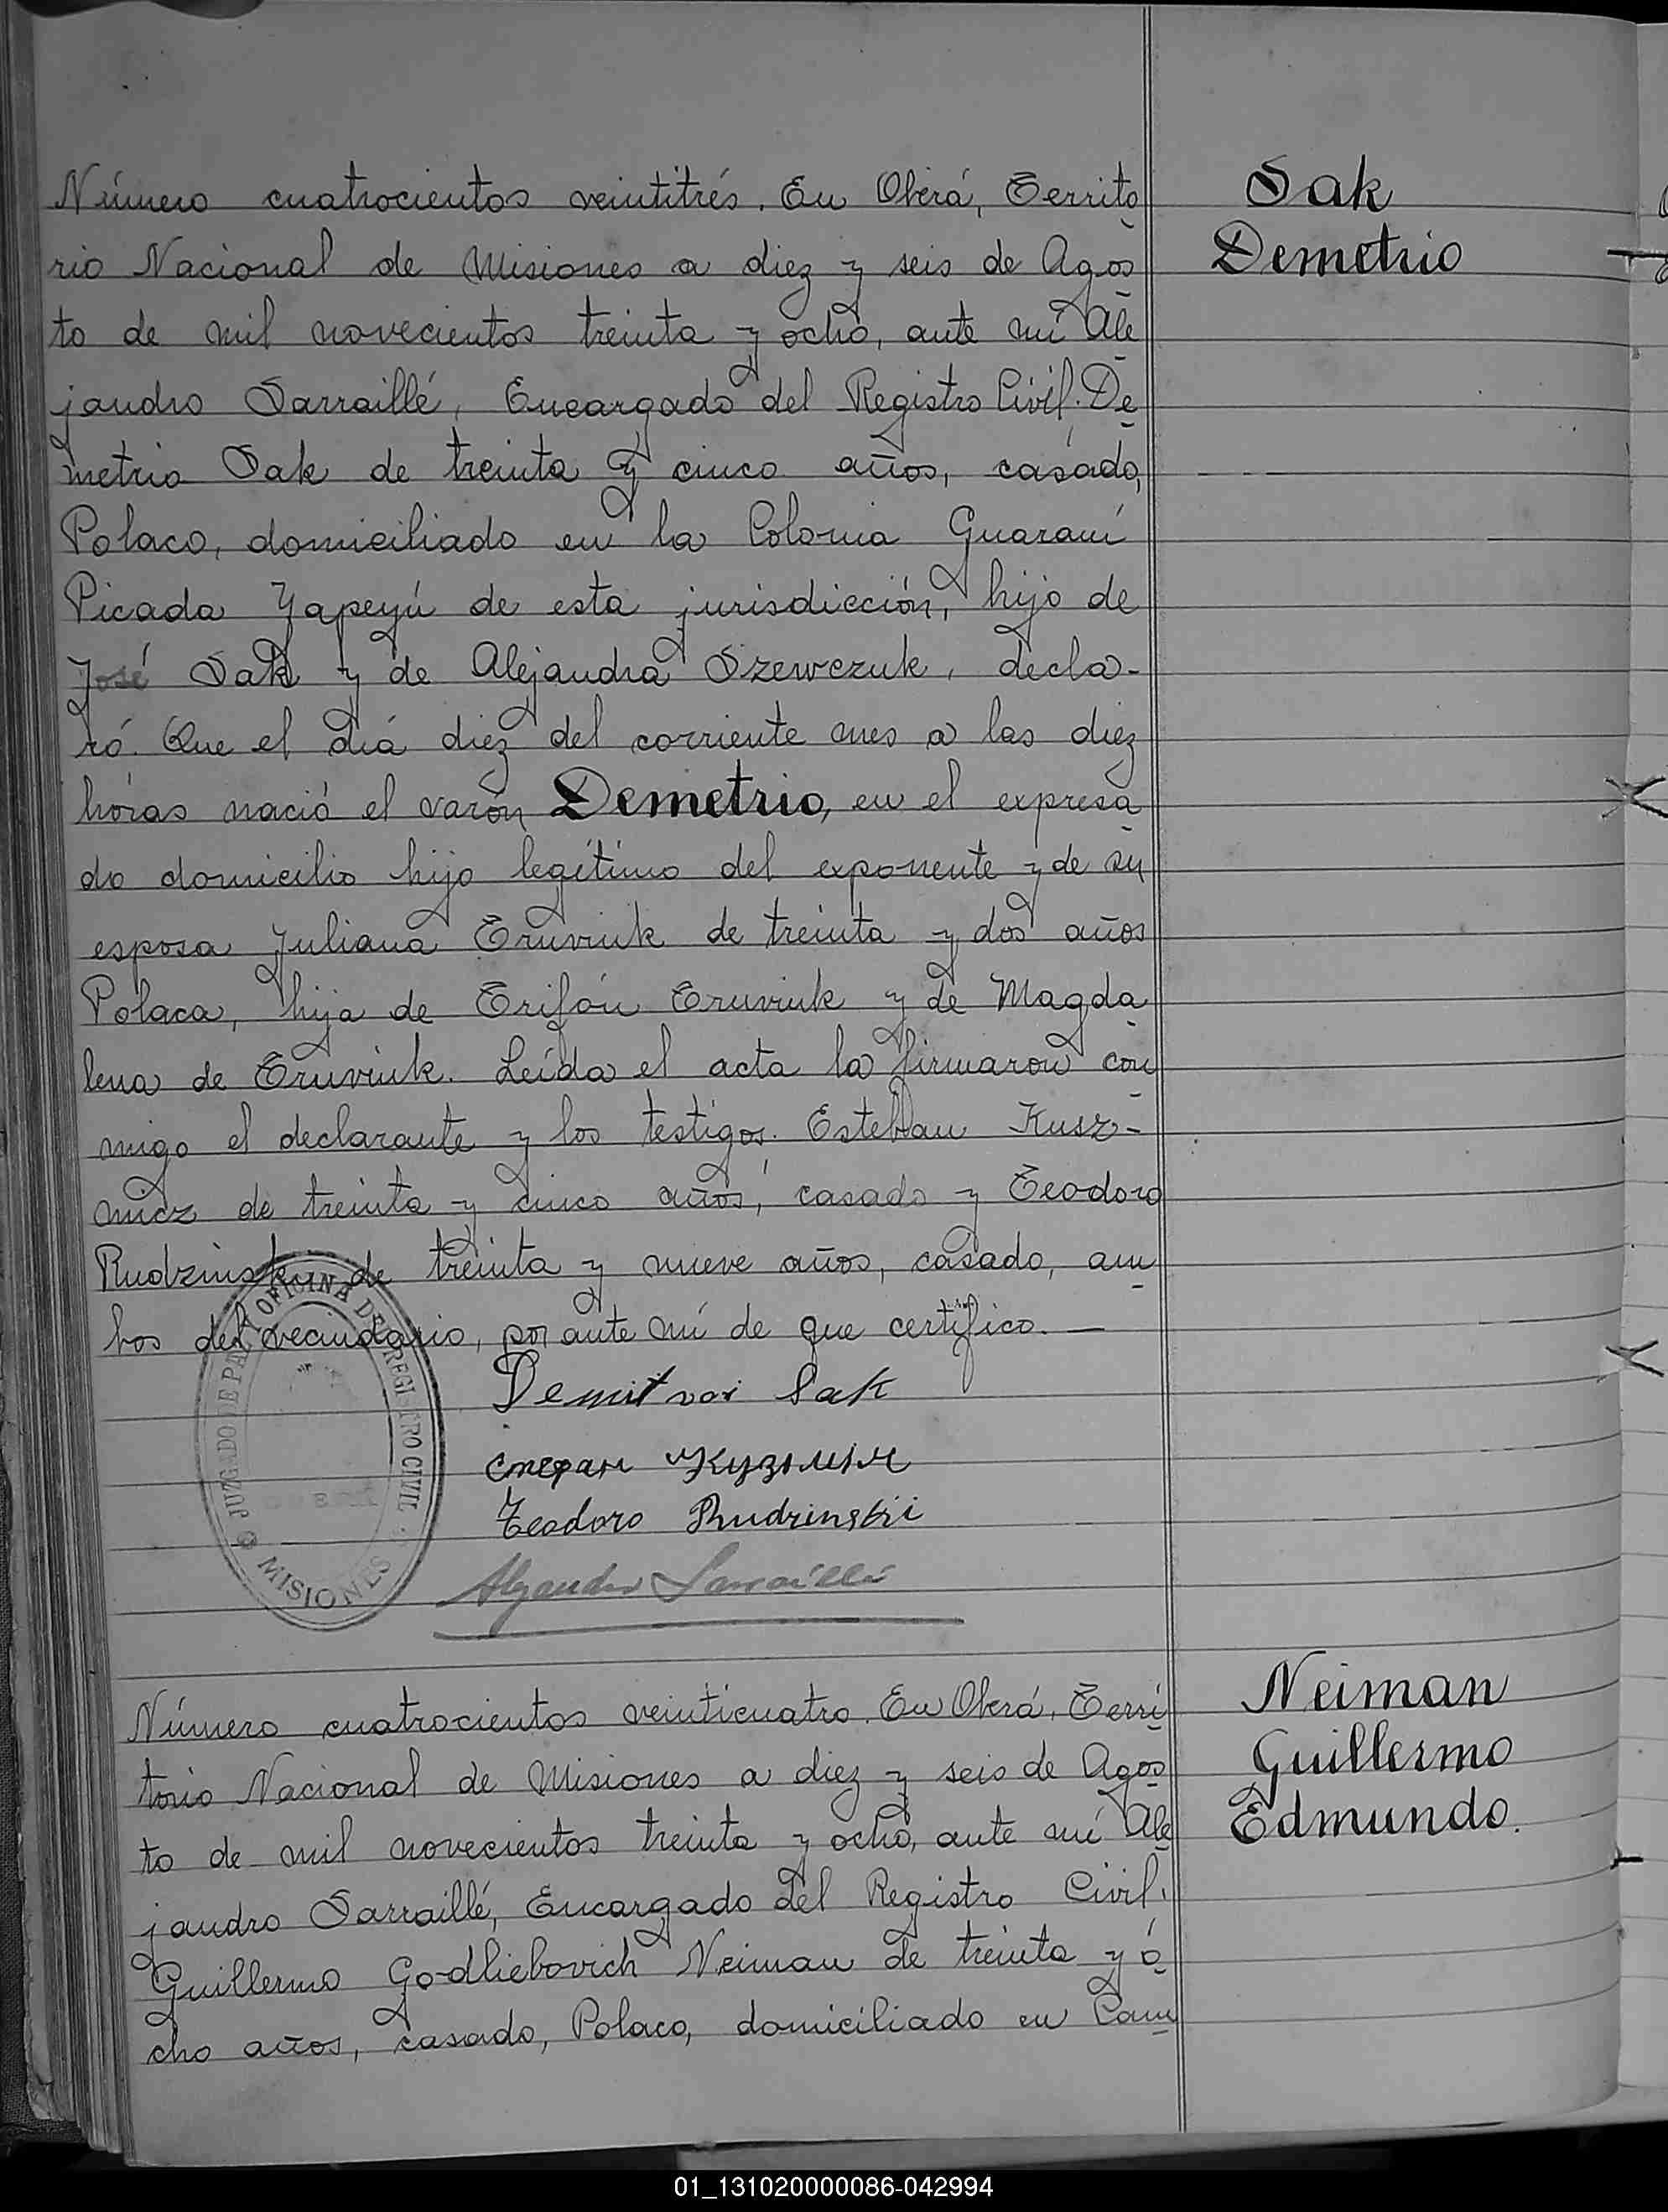 Número cuatrocientos veintitrés. En Oberá, Territo
rio Nacional de Misiones a diez y seis de Agos
to de mil novecientos treinta y ocho, ante mí Ale
jandro Sarraillé, Encargado del Registro Civil. De
metrio Sak de treinta y cinco años, casado,
Polaco, domiciliado en la Colonia Guaraní
Picada Yapeyú de esta jurisdicción, hijo de
José Sak y de Alejandra Szewczuk, decla-
ró. Que el día diez del corriente mes a las diez
horas nació el varón Demetrio, en el expresa
do domicilio hijo legítimo del exponente y de su
esposa Juliana de treinta y dos años
Polaca, hija de Trifón y de Magda
lena de Leída el acta la firmaron con
migo el declarante y los testigos. Esteban Kusz-
micz de treinta y cinco años, casado y Teodoro
Rudzinsky de treinta y nueve años, casado, am
bos del vecindario, por ante mí de que certifico.—
Sak
Стефан
Teodoro Rudzinskii
Alejandro Sarraillé
JUZGADO DE PAZ OFICINA DE REGISTRO CIVIL
MISIONES
Sak
Demetrio
Número cuatrocientos veinticuatro. En Oberá, Terri
torio Nacional de Misiones a diez y seis de Agos
to de mil novecientos treinta y ocho, ante mí Ale
jandro Sarraillé, Encargado del Registro Civil.
Guillermo Godliebovich Neiman de treinta y o
cho años, casado, Polaco, domiciliado en Cam
Neiman
Guillermo
Edmundo.
01_131020000086-042994